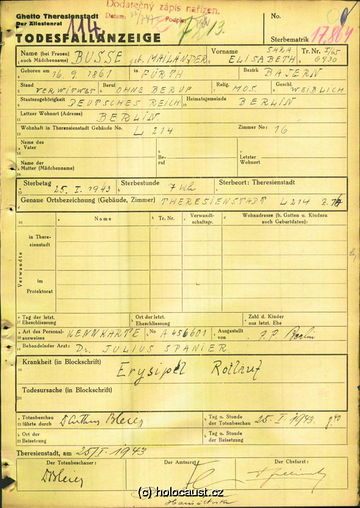 Ghetto Theresienstadt
Der Ältestenrat
Dodatečný zápis nařízen.
No:
114
TODESFALLANZEIGE
Sterbematrik
Name (bei Frauen auch Mädchenname) BUSSE geb. MAILÄNDER Vorname SARA ELISABETH Tr. Nr. I/65 6930
Geboren am 16. 9. 1861 in FÜRTH Bezirk BAYERN
Stand VERWITWET Beruf OHNE BERUF Relig. MOS. Geschl. WEIBLICH
Staatsangehörigkeit DEUTSCHES REICH Heimatsgemeinde BERLIN
Letzter Wohnort (Adresse) BERLIN
Wohnhaft in Theresienstadt Gebäude No. L 214 Zimmer No: 16
Name des Vater Beruf Letzter Wohnort
Name der Mutter (Mädchenname)
Sterbetag 25. I. 1943 Sterbestunde 7 Uhr Sterbeort: Theresienstadt
Genaue Ortsbezeichnung (Gebäude, Zimmer) THERESIENSTADT L 214
Name Tr. Nr. Verwandtschaftsgr. Wohnadresse (b. Gatten u. Kindern auch Geburtsdaten):
Verwandte
in Theresienstadt
im Protektorat
Tag der letzt. Eheschliessung Ort der letzt. Eheschliessung Zahl d. Kinder aus letzt. Ehe
Art des Personalausweises KENNKARTE No A 456601 Ausgestellt von P.P. Berlin
Behandelnder Arzt Dr. JULIUS SPANIER
Krankheit (in Blockschrift) Erysipel Rotlauf
Todesursache (in Blockschrift)
Totenbeschau führte durch Tag u. Stunde der Totenbeschau 25. I. 1943.
Ort der Beisetzung Tag u. Stunde der Beisetzung
Theresienstadt, am 25/I 1943
Der Totenbeschauer: Der Amtsarzt Der Chefarzt:
(c) holocaust.cz